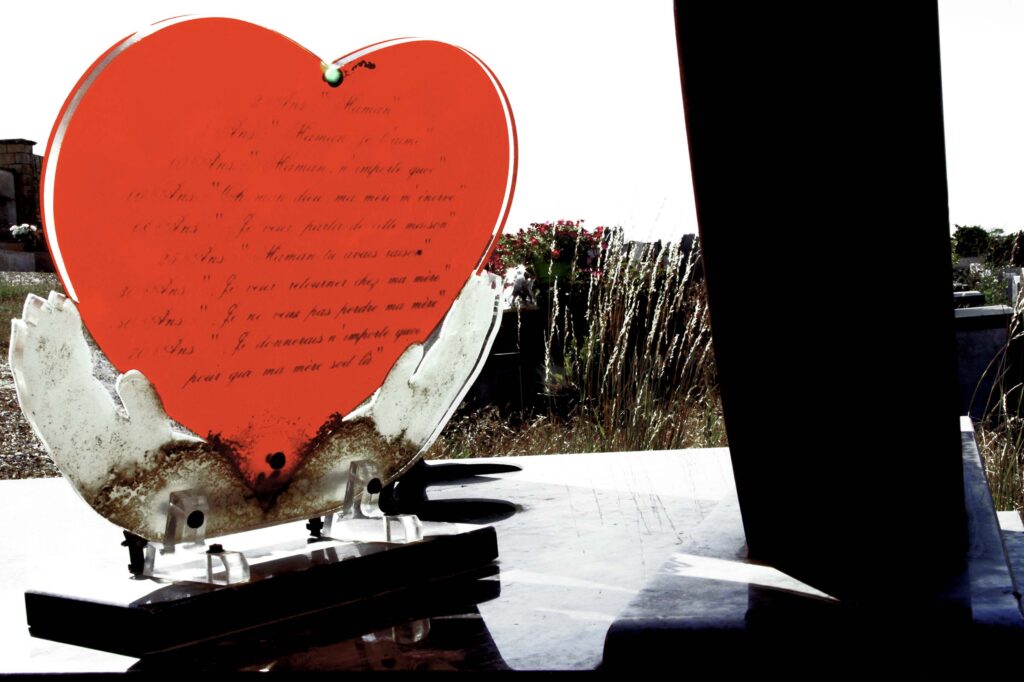 Ans : "Maman"
Ans : "Maman, je t'aime"
10 Ans : "Maman, n'importe quoi"
Ans : "Oh mon dieu ma mère m'énerve"
18 Ans : "Je veux partir de cette maison"
25 Ans : "Maman tu avais raison"
30 Ans : "Je veux retourner chez ma mère"
50 Ans : "Je ne veux pas perdre ma mère"
70 Ans : "Je donnerais n'importe quoi
pour que ma mère soit là"